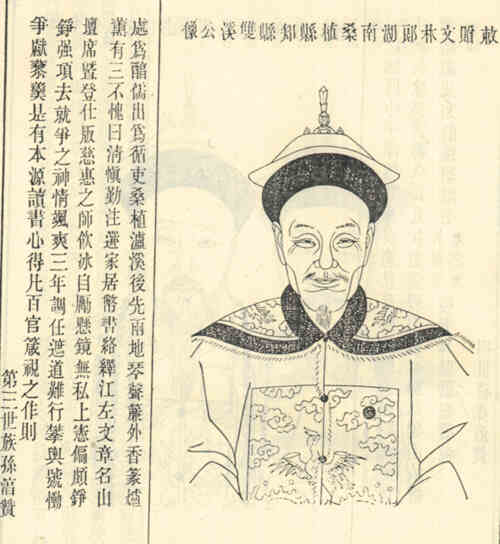 敕贈文林郎湖南桑植縣知縣雙溪公像
處爲醇儒出爲循吏桑植瀘溪後先兩地琴聲簾外香篆爐
薰有三不愧曰清慎勤注選家居幣書絡繹江左文章名山
壇席暨登仕版慈惠之師飲冰自勵懸鏡無私上憲偏頗錚
錚强項去就爭之神情颯爽三年調任遮道難行攀輿號慟
爭獻藜羹是有本源讀書心得凡百官箴視之作則
第三世族孫贊